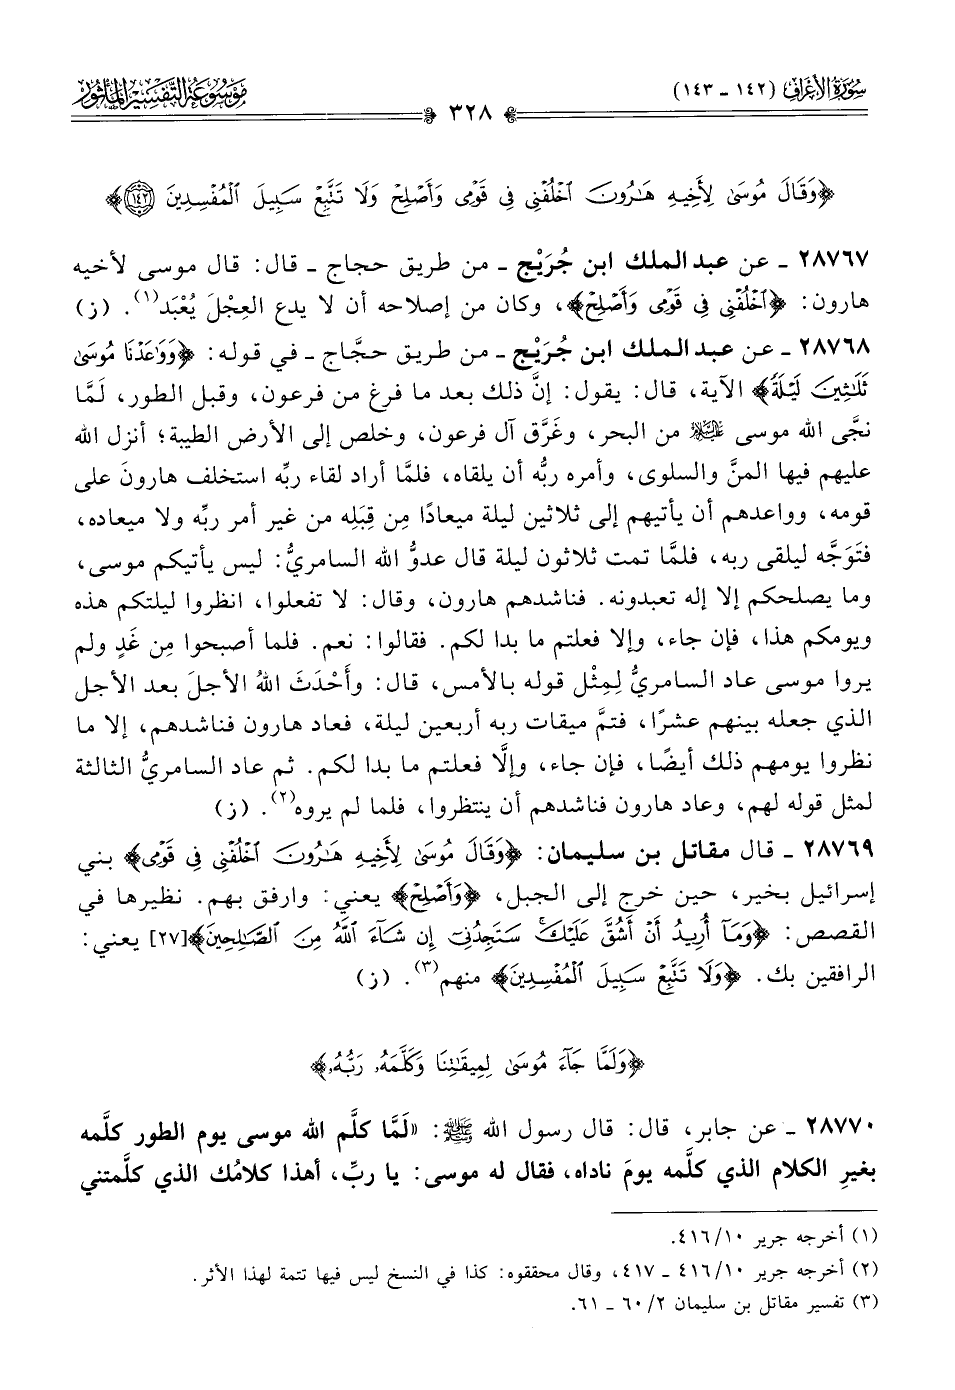 سورة الأعراف (١٤٢ - ١٤٣)
٣٢٨
موسوعة التفسير المأثور
﴿وَقَالَ مُوسَىٰ لِأَخِيهِ هَـٰرُونَ ٱخْلُفْنِى فِى قَوْمِى وَأَصْلِحْ وَلَا تَتَّبِعْ سَبِيلَ ٱلْمُفْسِدِينَ ١٤٢﴾
٢٨٧٦٧ - عن عبد الملك ابن جُرَيْج - من طريق حجاج - قال: قال موسى لأخيه
هارون: ﴿ٱخْلُفْنِى فِى قَوْمِى وَأَصْلِحْ﴾، وكان من إصلاحه أن لا يدع العِجْلَ يُعْبَد(١). (ز)
٢٨٧٦٨ - عن عبد الملك ابن جُرَيْج - من طريق حجَّاج - في قوله: ﴿وَوَٰعَدْنَا مُوسَىٰ
ثَلَـٰثِينَ لَيْلَةً﴾ الآية، قال: يقول: إنَّ ذلك بعد ما فرغ من فرعون، وقبل الطور، لَمَّا
نجَّى الله موسى عليه السلام من البحر، وغَرَّق آل فرعون، وخلص إلى الأرض الطيبة؛ أنزل الله
عليهم فيها المنَّ والسلوى، وأمره ربُّه أن يلقاه، فلمَّا أراد لقاء ربِّه استخلف هارونَ على
قومه، وواعدهم أن يأتيهم إلى ثلاثين ليلة ميعادًا مِن قِبَلِه من غير أمر ربِّه ولا ميعاده،
فتَوَجَّه ليلقى ربه، فلمَّا تمت ثلاثون ليلة قال عدوُّ الله السامريُّ: ليس يأتيكم موسى،
وما يصلحكم إلا إله تعبدونه. فناشدهم هارون، وقال: لا تفعلوا، انظروا ليلتكم هذه
ويومكم هذا، فإن جاء، وإلا فعلتم ما بدا لكم. فقالوا: نعم. فلما أصبحوا مِن غَدٍ ولم
يروا موسى عاد السامريُّ لِمِثْل قوله بالأمس، قال: وأَحْدَثَ اللهُ الأجلَ بعد الأجل
الذي جعله بينهم عشرًا، فتمَّ ميقات ربه أربعين ليلة، فعاد هارون فناشدهم، إلا ما
نظروا يومهم ذلك أيضًا، فإن جاء، وإلَّا فعلتم ما بدا لكم. ثم عاد السامريُّ الثالثة
لمثل قوله لهم، وعاد هارون فناشدهم أن ينتظروا، فلما لم يروه(٢). (ز)
٢٨٧٦٩ - قال مقاتل بن سليمان: ﴿وَقَالَ مُوسَىٰ لِأَخِيهِ هَـٰرُونَ ٱخْلُفْنِى فِى قَوْمِى﴾ بني
إسرائيل بخير، حين خرج إلى الجبل، ﴿وَأَصْلِحْ﴾ يعني: وارفق بهم. نظيرها في
القصص: ﴿وَمَآ أُرِيدُ أَنْ أَشُقَّ عَلَيْكَ سَتَجِدُنِىٓ إِن شَآءَ ٱللَّهُ مِنَ ٱلصَّـٰلِحِينَ﴾[٢٧] يعني:
الرافقين بك. ﴿وَلَا تَتَّبِعْ سَبِيلَ ٱلْمُفْسِدِينَ﴾ منهم(٣). (ز)
﴿وَلَمَّا جَآءَ مُوسَىٰ لِمِيقَـٰتِنَا وَكَلَّمَهُۥ رَبُّهُۥ﴾
٢٨٧٧٠ - عن جابر، قال: قال رسول الله ﷺ: «لَمَّا كلَّم الله موسى يوم الطور كلَّمه
بغيرِ الكلام الذي كلَّمه يومَ ناداه، فقال له موسى: يا ربِّ، أهذا كلامُك الذي كلَّمتني
(١) أخرجه جرير ٤١٦/١٠.
(٢) أخرجه جرير ٤١٦/١٠ - ٤١٧، وقال محققوه: كذا في النسخ ليس فيها تتمة لهذا الأثر.
(٣) تفسير مقاتل بن سليمان ٦٠/٢ - ٦١.